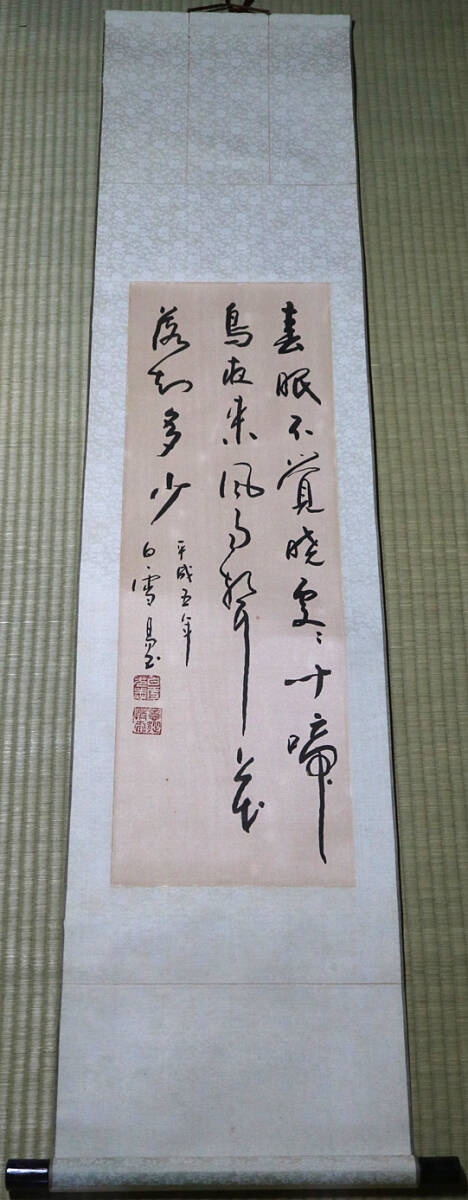 春眠不覚暁処々聞啼
鳥夜来風雨声花
落知多少
平成五年
白雪